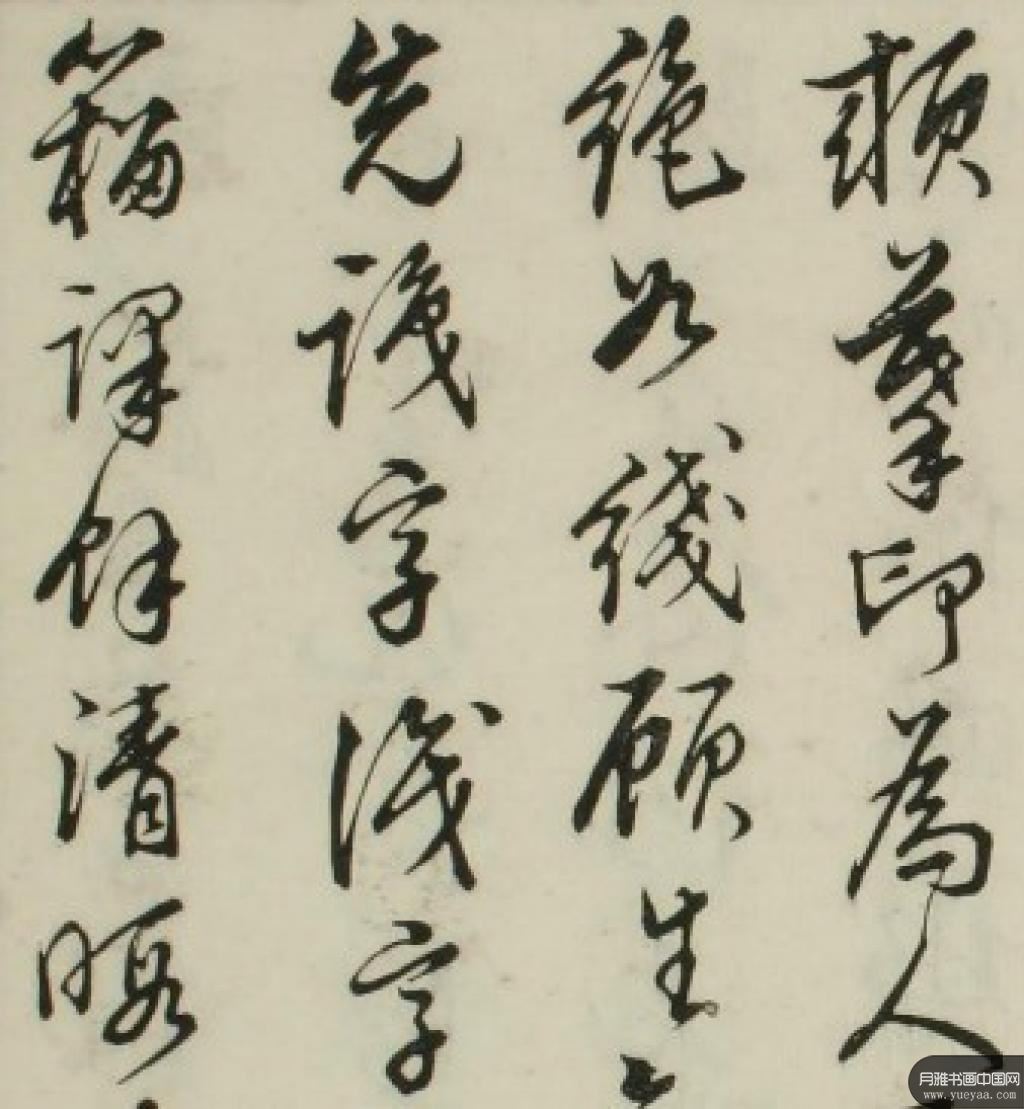 頼摹印為人
絕如綫顧生
先識字識字
籀課餘清暇
月雅书画中国网
www.yueyaa.com